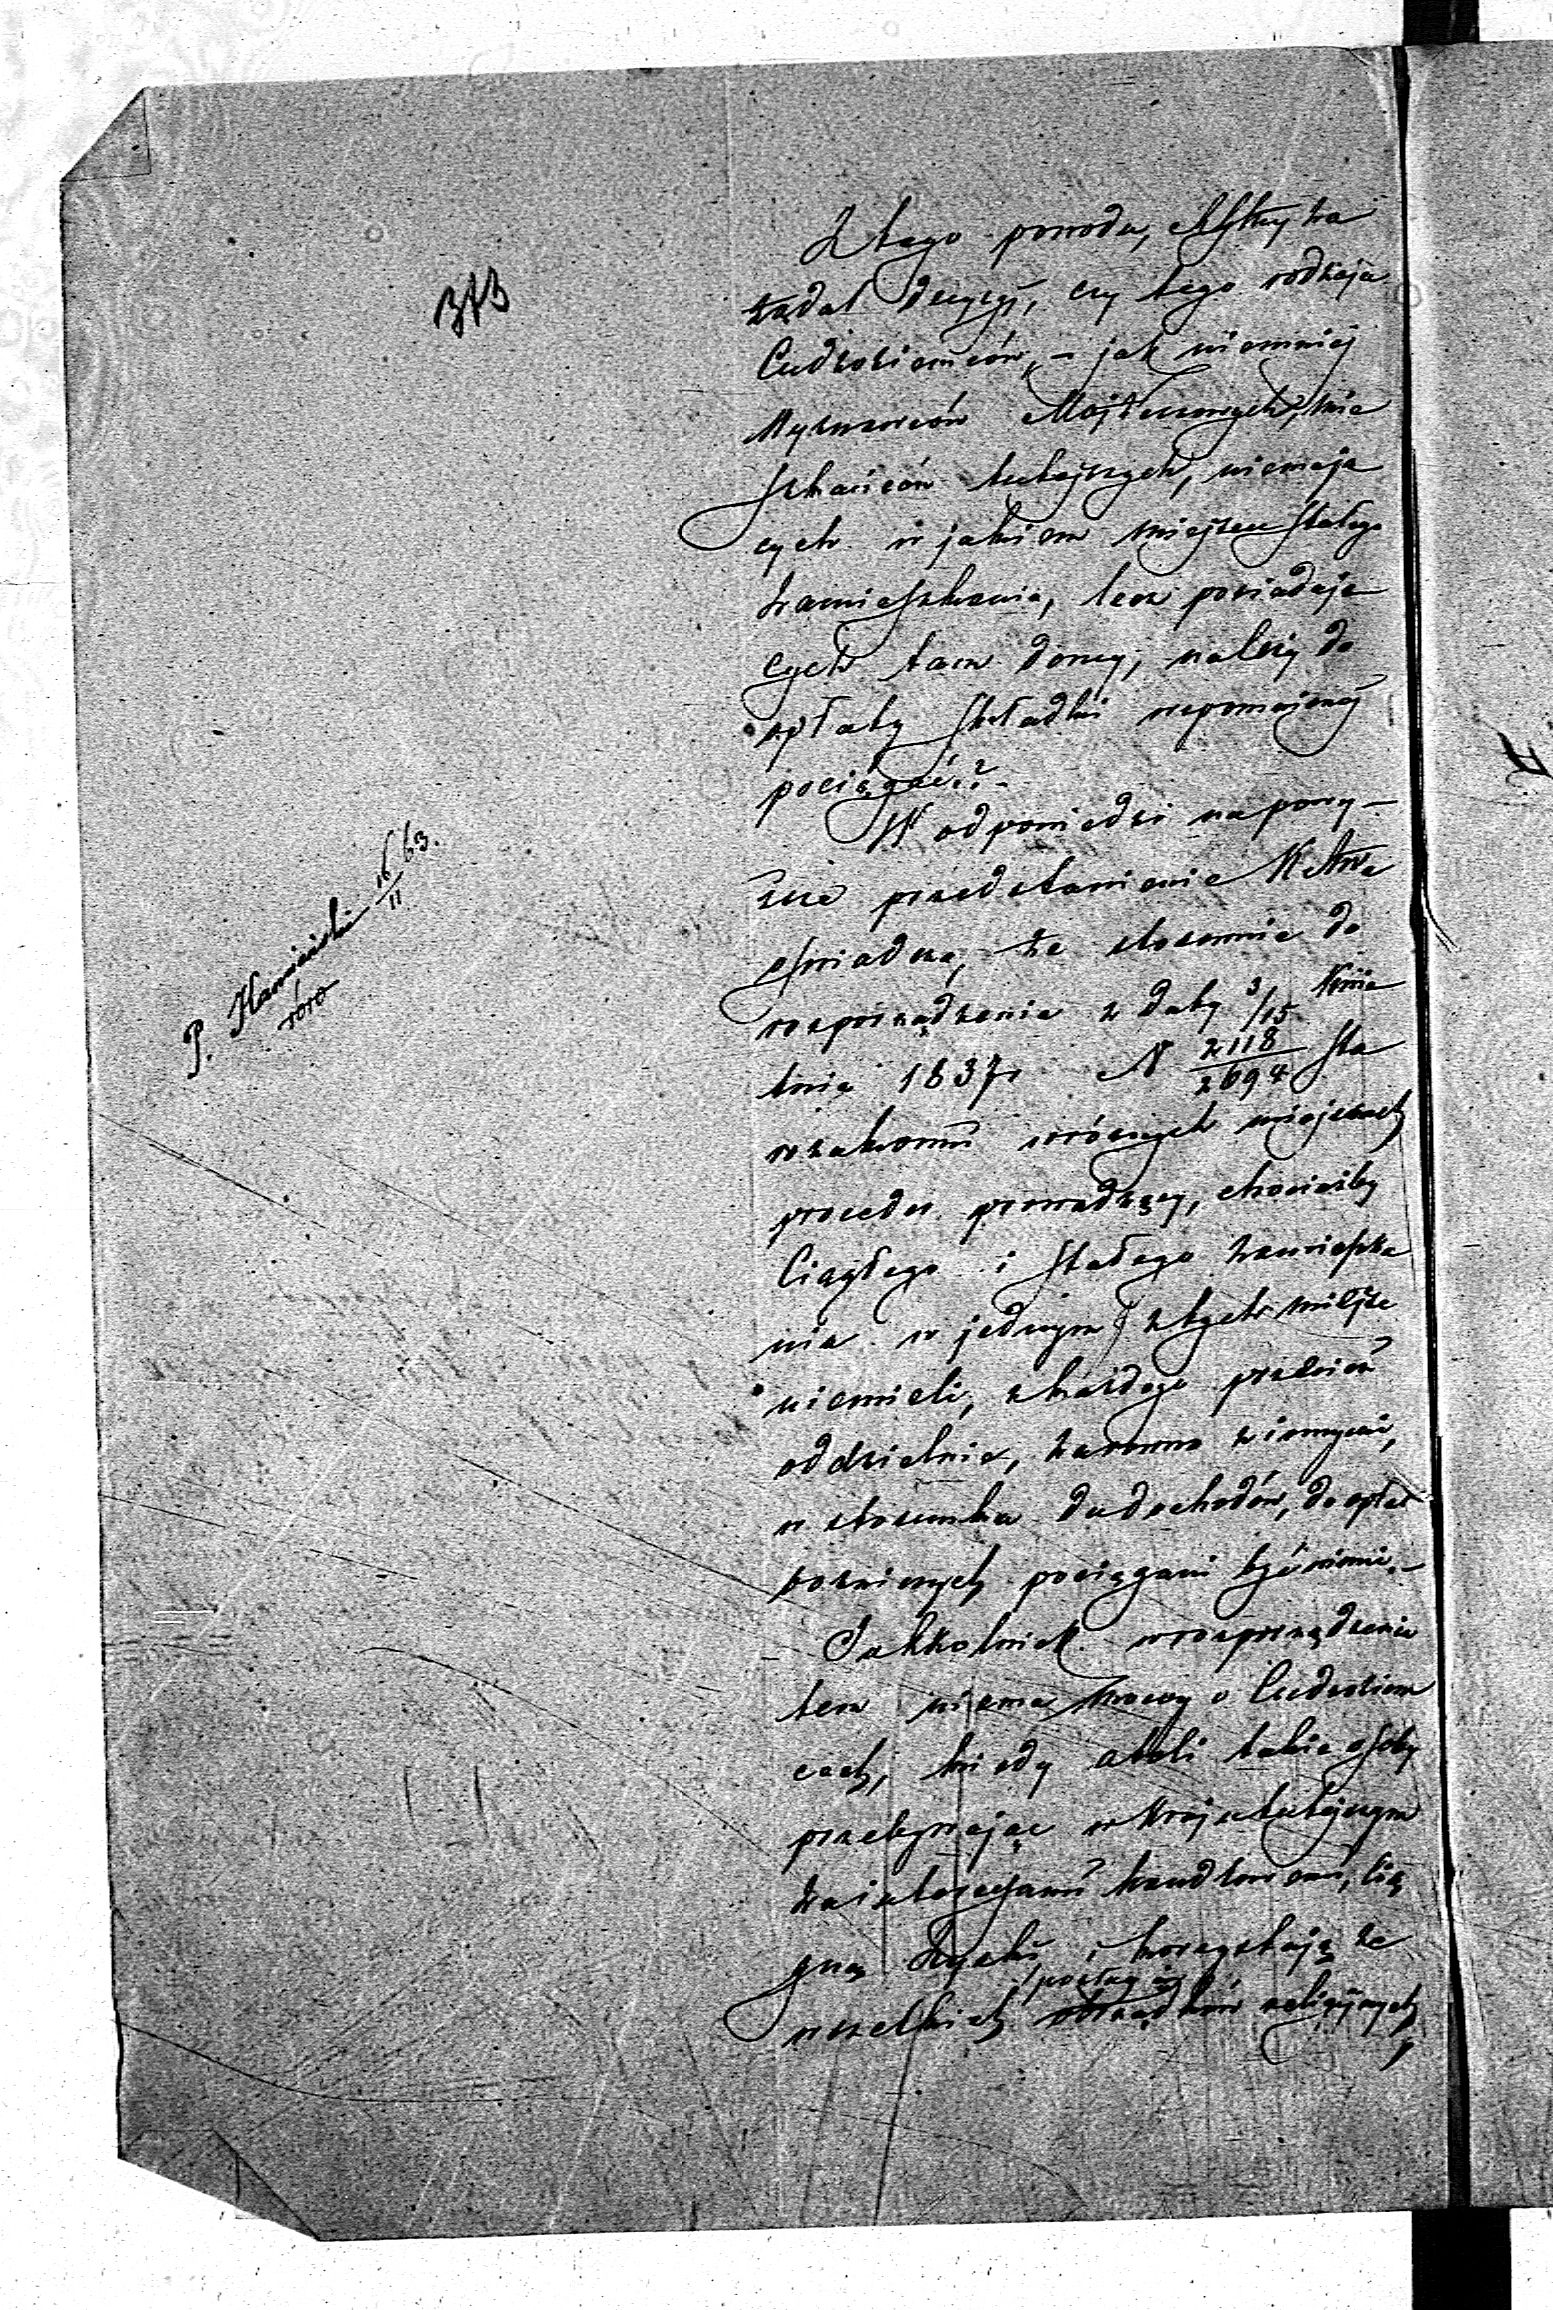 373
Z tego powodu, Mgttny ra
żądał decyzyi, czy tego rodzaju
Cudzoziemców, – jak niemniej
Wyznawców Mojżeszowych, mie
szkańców tutejszych, niemają
cych w jakiem miejscu stałego
zamieszkania, lecz posiadają
cych tam domy, należy do
opłaty składki wspomnionej
pociągać? –
W odpowiedzi na powy–
ższe przedstawienie
oświadcza, że stosownie do
rozporządzenia z daty 3/15 Kwie
tnia 1837 r N 2118/2694 sta
rozakonni w różnych miejscach
proceder prowadzący, chociażby
Ciągłego i stałego zamieszka
nia w jednym z tych miejsc
niemieli, z każdego przecież
oddzielnie, zarówno z innymi,
w stosunku do dochodów, do opłat
bożniczych pociągani być winni. –
Jakkolwiek w rozporządzeniu
tem niema mowy o Cudzoziem
cach, kiedy atoli takie osoby
przebywając w Kraju tutejszym
za interesami handlowemi, cią
gną zyski i korzystają ze
wszelkich posług religijnych,
P. Kamiński 16/11 63.